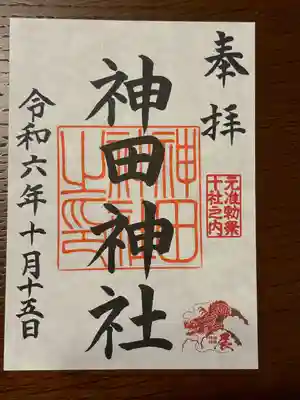 奉拝
元准勅祭
十社之内
神田神社
神田
神社
之印
令和六年十月十五日